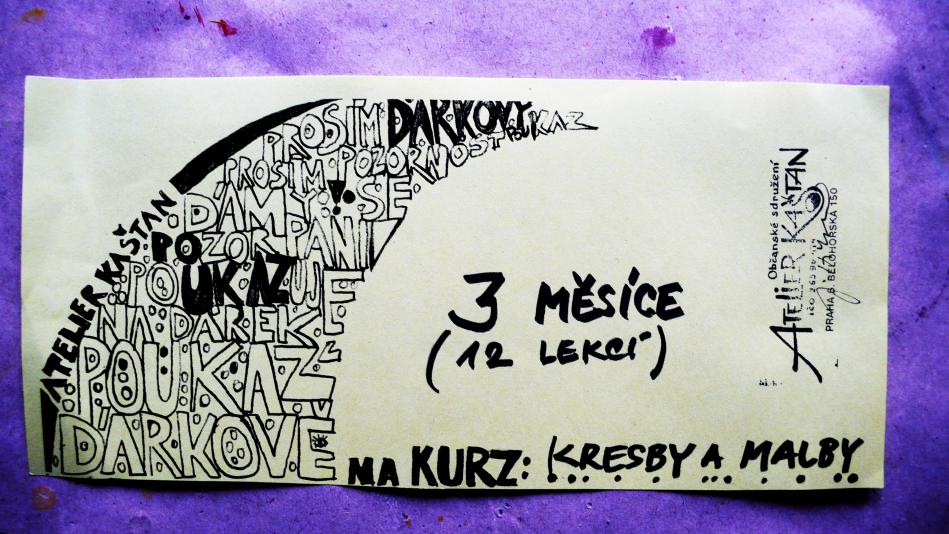 ATELIER KAŠTAN
PROSÍM DÁRKOVÝ POUKAZ
PROSÍM POZORNOST
DÁMY SE
POZOR PÁNI
POUKAZUJE
NA DÁREK
POUKAZ
DÁRKOVÉ
3 MĚSÍCE
(12 LEKCÍ)
NA KURZ: KRESBY A MALBY
Občanské sdružení
ATELIER KAŠTAN
PRAHA 6, BĚLOHORSKÁ 150